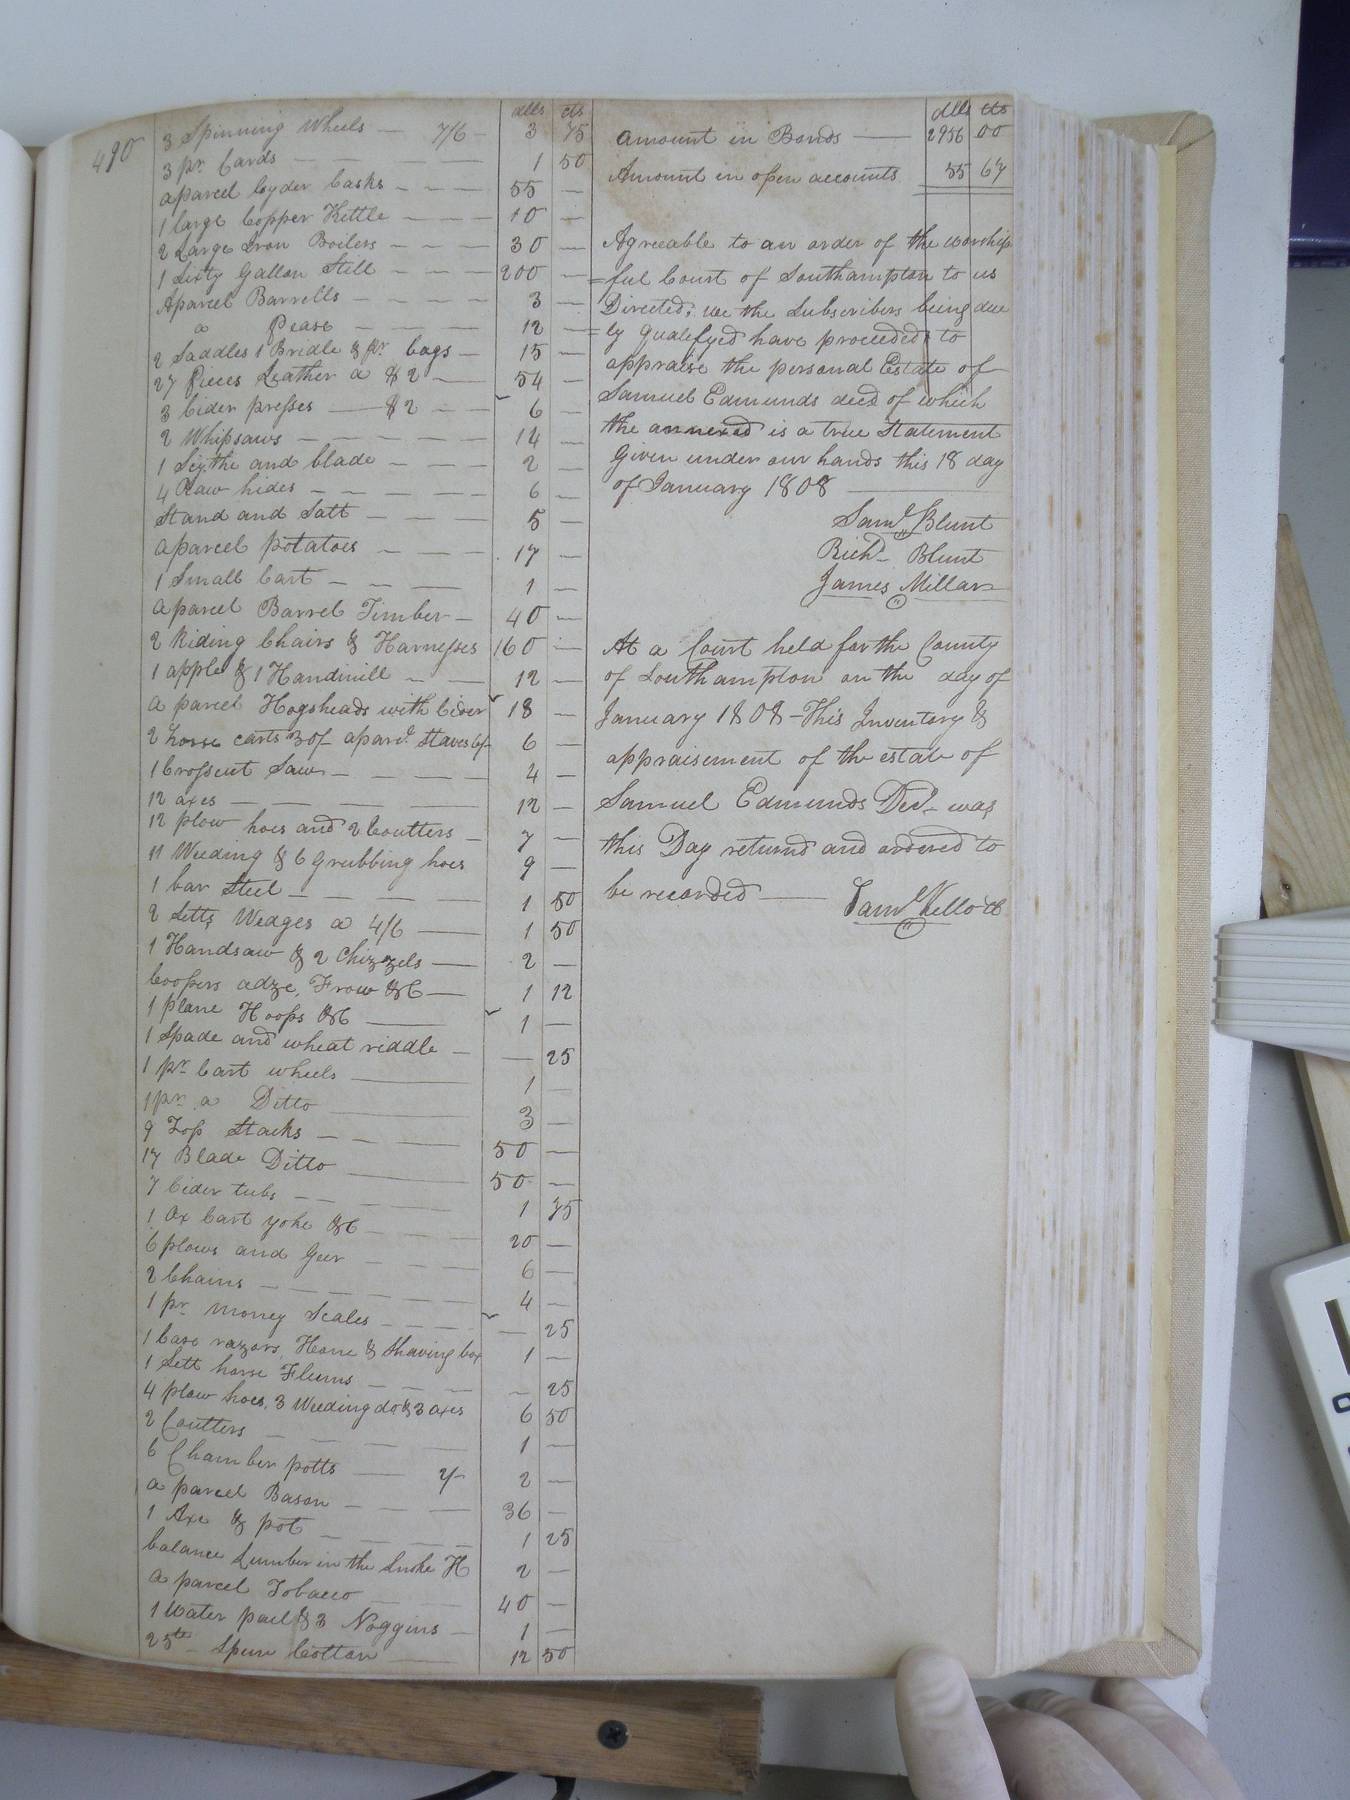 490
dlls cts
3 Spinning Wheels — 7/6 — 3 75
3 pr. Cards — — — — 1 50
a parcel Cyder Casks — — — 55 —
1 large Copper Kettle — — — 10 —
2 Large Iron Boilers — — — 30 —
1 Sixty Gallon Still — — — 200 —
A parcel Barrells — — — — 3 —
a Pease — — — — 12 —
2 Saddles 1 Bridle & pr. bags — 15 —
27 Pieces Leather a $2 — 54 —
3 Cider presses — $2 — — 6 —
2 Whipsaws — — — — — 14 —
1 Scythe and blade — — — 2 —
4 Raw hides — — — — — 6 —
Stand and Salt — — — — 5 —
a parcel potatoes — — — — 17 —
1 Small Cart — — — 1 —
a parcel Barrel Timber — 40 —
2 Riding Chairs & Harnesses 160 —
1 apple & 1 Handmill — — 12 —
a parcel Hogsheads with Cider 18 —
2 horse carts 3 of a parcl. Staves 6 —
1 Crosscut Saw — — — — 4 —
12 axes — — — — 12 —
12 plow hoes and 2 Coutters — 7 —
11 Weeding & 6 grubbing hoes 9 —
1 bar Steel — — — — 1 50
2 Setts Wedges a 4/6 — 1 50
1 Handsaw & 2 Chizzels — 2 —
Coopers adze, Frow &C — 1 12
1 plane Hoops &C — 1 —
1 Spade and wheat riddle — — 25
1 pr. Cart wheels — 1 —
1 pr. a Ditto — 3 —
9 Top Stacks — — — 50 —
17 Blade Ditto — 50 —
7 Cider tubs — — — 1 75
1 Ox Cart yoke &C — — — 20 —
6 plows and Geer — — — 6 —
2 Chains — — — — — 4 —
1 pr. money Scales — — — — — 25
1 Case razors, Hone & Shaving box 1 —
1 Sett horse Fleims — — — — 25
4 plow hoes, 3 Weeding do & 3 axes 6 50
2 Coutters — — — — 1 —
6 Chamber potts — 2/- 2 —
a parcel Bason — — — 36 —
1 Axe & pot — — — — 1 25
balance Lumber in the Smoke H 2 —
a parcel Tobacco — — 40 —
1 Water pail & 3 Noggins — 1 —
25 Spun Cotton — 12 50
dlls cts
Amount in Bonds — 2956 00
Amount in open accounts 55 67
Agreeable to an order of the worship
=ful Court of Southampton to us
Directed; we the Subscribers being due
=ly qualefyed have proceeded to
appraise the personal Estate of
Samuel Edmunds decd of which
the annexed is a true Statement
Given under our hands this 18 day
of January 1808 —
Saml. Blunt
Richd. Blunt
James Millar
At a Court held for the County
of Southampton on the day of
January 1808 - This Inventory &
appraisement of the estate of
Samuel Edmunds Decd. was
this Day returnd and ordered to
be recorded — Saml. Kello Cl